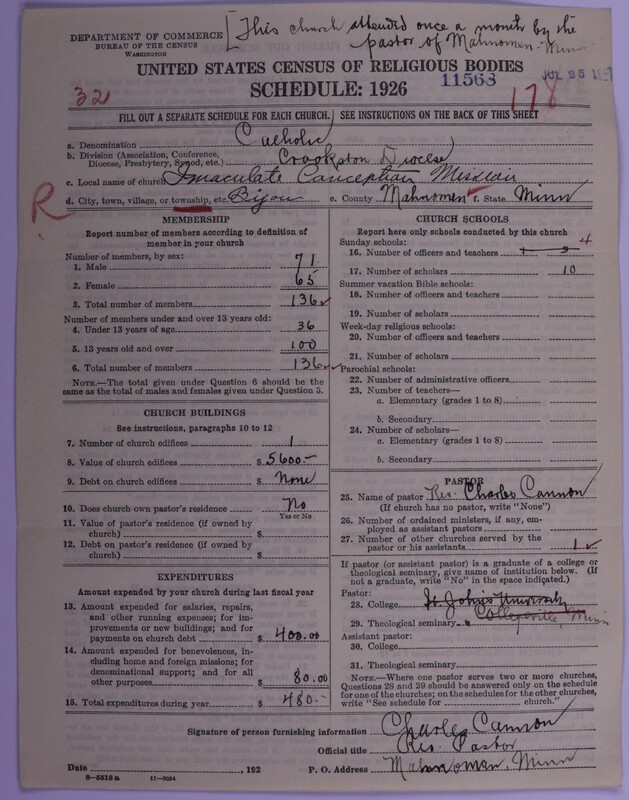 [This church attended once a month by the
pastor of Mahnomen, Minn
DEPARTMENT OF COMMERCE
BUREAU OF THE CENSUS
WASHINGTON
UNITED STATES CENSUS OF RELIGIOUS BODIES
11568
SCHEDULE: 1926
32
178
FILL OUT A SEPARATE SCHEDULE FOR EACH CHURCH. SEE INSTRUCTIONS ON THE BACK OF THIS SHEET
a. Denomination Catholic
b. Division (Association, Conference, Diocese, Presbytery, Synod, etc.) Crookston Diocese
c. Local name of church Imaculate Conception Mission
R
d. City, town, village, or township, etc. Bijou e. County Mahnomen f. State Minn
MEMBERSHIP
Report number of members according to definition of member in your church
Number of members, by sex:
1. Male 71
2. Female 65
3. Total number of members 136
Number of members under and over 13 years old:
4. Under 13 years of age 36
5. 13 years old and over 100
6. Total number of members 136
NOTE.—The total given under Question 6 should be the same as the total of males and females given under Question 3.
CHURCH BUILDINGS
See instructions, paragraphs 10 to 12
7. Number of church edifices 1
8. Value of church edifices $ 5600.—
9. Debt on church edifices $ None
10. Does church own pastor's residence No
Yes or No
11. Value of pastor's residence (if owned by church) $
12. Debt on pastor's residence (if owned by church) $
EXPENDITURES
Amount expended by your church during last fiscal year
13. Amount expended for salaries, repairs, and other running expenses; for improvements or new buildings; and for payments on church debt $ 400.00
14. Amount expended for benevolences, including home and foreign missions; for denominational support; and for all other purposes $ 80.00
15. Total expenditures during year $ 480-
CHURCH SCHOOLS
Report here only schools conducted by this church
Sunday schools:
16. Number of officers and teachers 4
17. Number of scholars 10
Summer vacation Bible schools:
18. Number of officers and teachers
19. Number of scholars
Week-day religious schools:
20. Number of officers and teachers
21. Number of scholars
Parochial schools:
22. Number of administrative officers
23. Number of teachers—
a. Elementary (grades 1 to 8)
b. Secondary
24. Number of scholars—
a. Elementary (grades 1 to 8)
b. Secondary
PASTOR
25. Name of pastor Rev. Charles Cannon
(If church has no pastor, write "None")
26. Number of ordained ministers, if any, employed as assistant pastors
27. Number of other churches served by the pastor or his assistants 1
If pastor (or assistant pastor) is a graduate of a college or theological seminary, give name of institution below. (If not a graduate, write "No" in the space indicated.)
Pastor:
28. College St. John's University
29. Theological seminary Collegeville, Minn
Assistant pastor:
30. College
31. Theological seminary
NOTE.—Where one pastor serves two or more churches, Questions 28 and 29 should be answered only on the schedule for one of the churches; on the schedules for the other churches, write "See schedule for church."
Signature of person furnishing information Charles Cannon
Official title Rev. Pastor
Date , 192 P. O. Address Mahnomen, Minn
8-5518a 11-9034